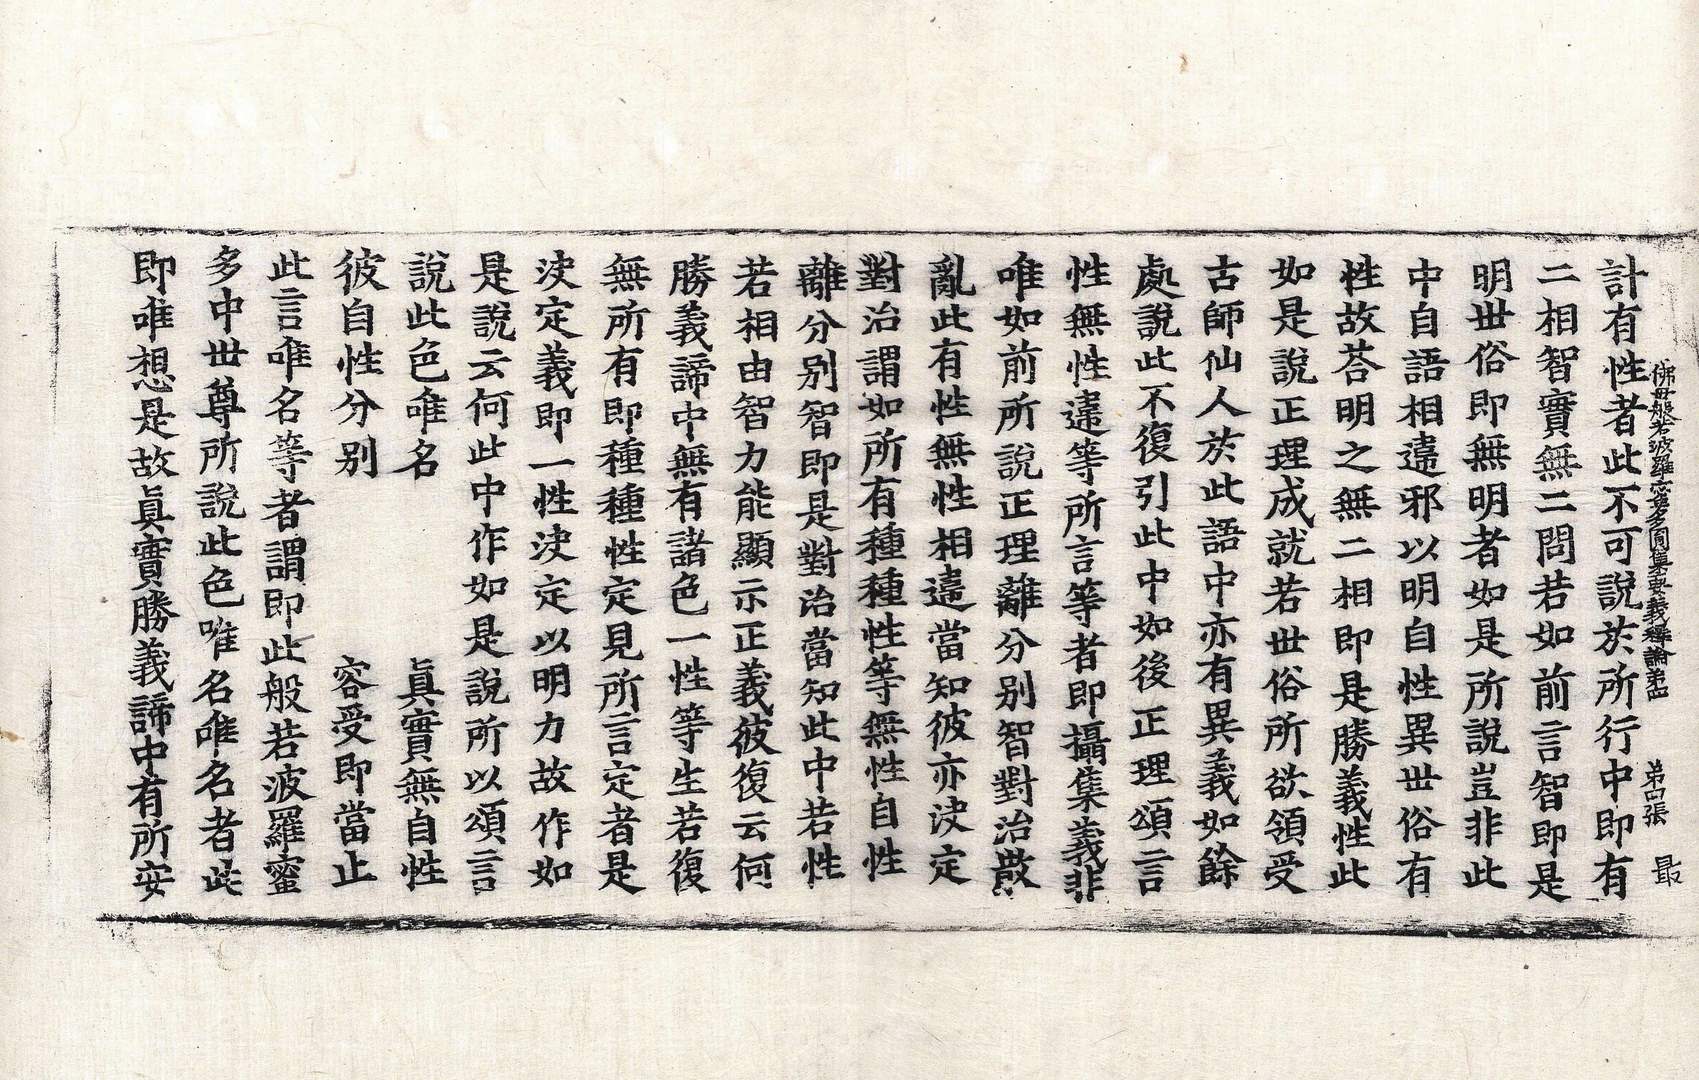 佛母般若波羅蜜多圓集要義釋論第四 第四張 最
計有性者此不可說於所行中即有
二相智實無二問若如前言智即是
明世俗即無明者如是所說豈非此
中自語相違邪以明自性異世俗有
性故荅明之無二相即是勝義性此
如是說正理成就若世俗所欲領受
古師仙人於此語中亦有異義如餘
處說此不復引此中如後正理頌言
性無性違等所言等者即攝集義非
唯如前所說正理離分別智對治散
亂此有性無性相違當知彼亦決定
對治謂如所有種種性等無性自性
離分別智即是對治當知此中若性
若相由智力能顯示正義彼復云何
勝義諦中無有諸色一性等生若復
無所有即種種性定見所言定者是
決定義即一性決定以明力故作如
是說云何此中作如是說所以頌言
說此色唯名 真實無自性
彼自性分別 容受即當止
此言唯名等者謂即此般若波羅蜜
多中世尊所說此色唯名唯名者此
即唯想是故真實勝義諦中有所安